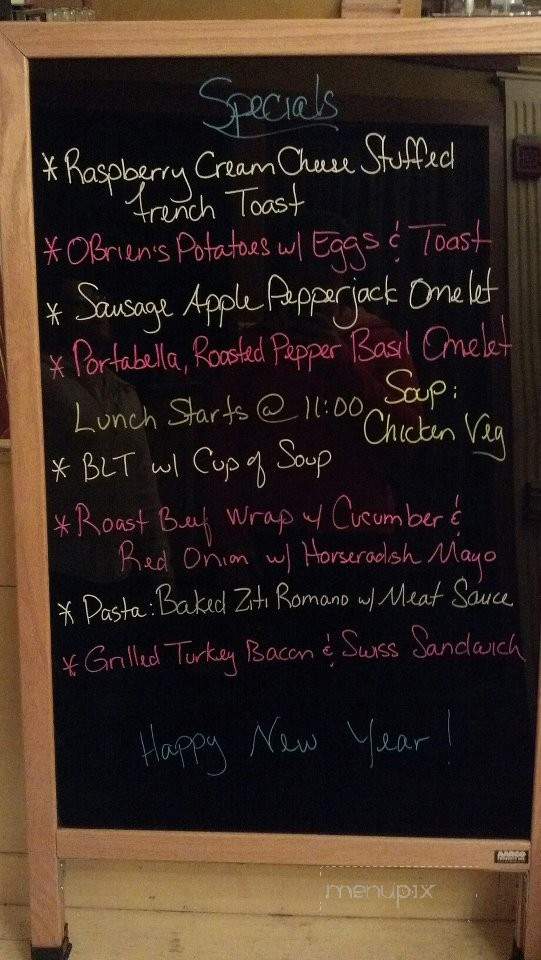 Specials
* Raspberry Cream Cheese Stuffed
French Toast
* OBrien's Potatoes w/ Eggs & Toast
* Sausage Apple Pepperjack Omelet
* Portabella, Roasted Pepper Basil Omelet
Lunch Starts @ 11:00
Soup:
Chicken Veg
* BLT w/ Cup of Soup
* Roast Beef Wrap w/ Cucumber &
Red Onion w/ Horseradish Mayo
* Pasta: Baked Ziti Romano w/ Meat Sauce
* Grilled Turkey Bacon & Swiss Sandwich
Happy New Year!
AARCO
menupix